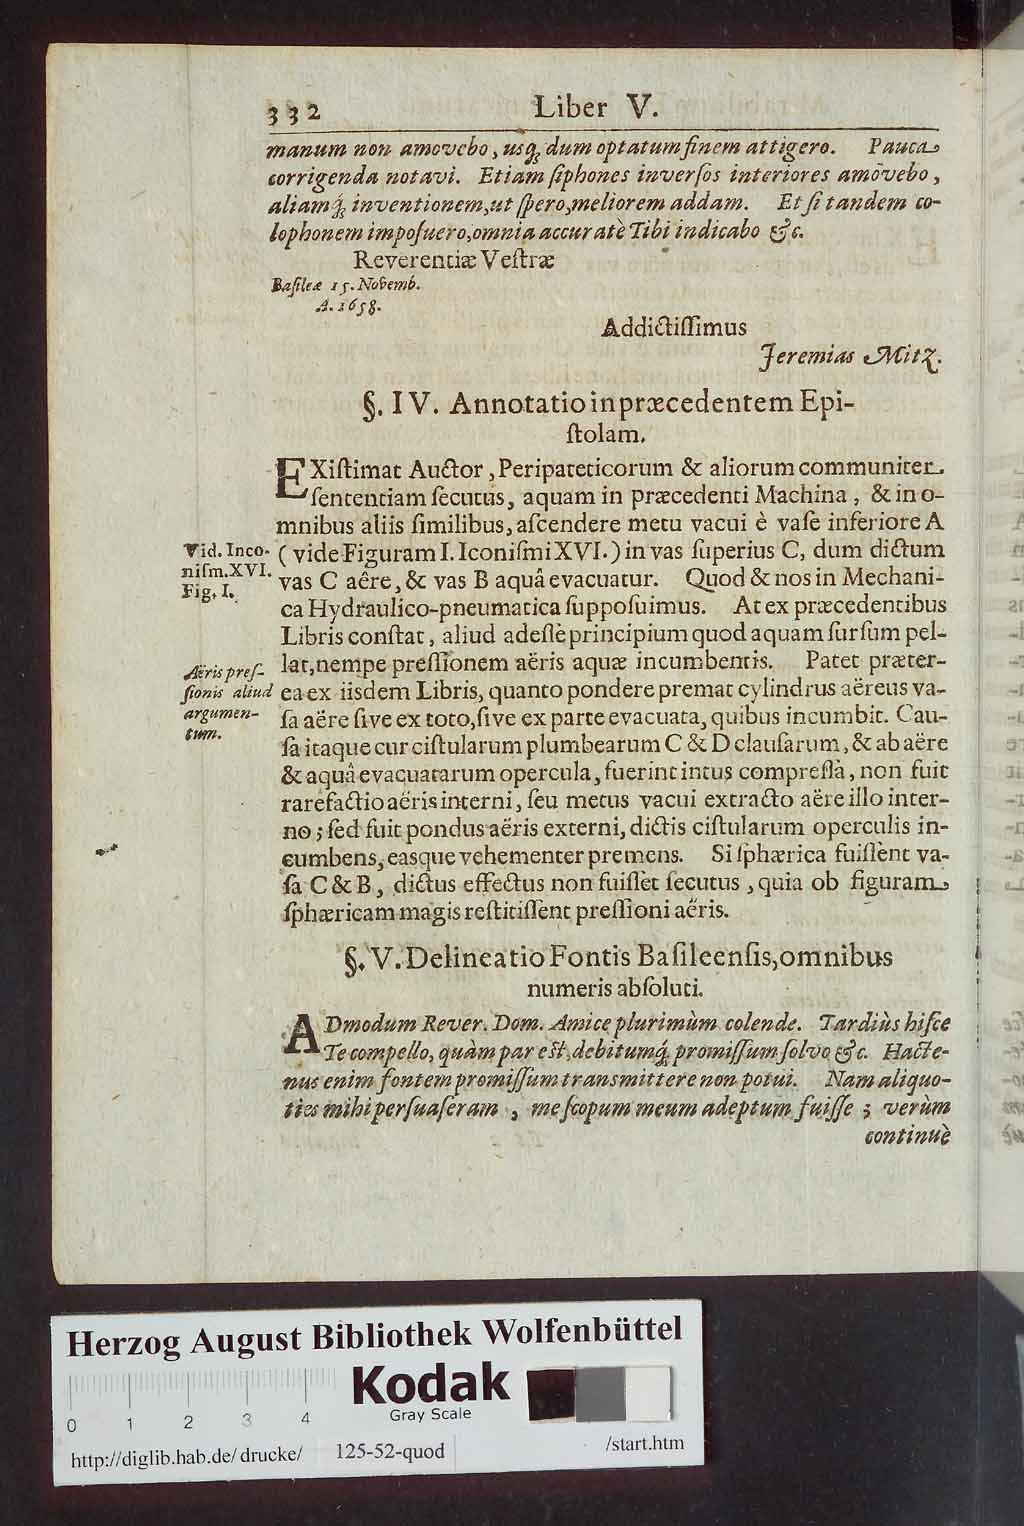 332 Liber V.
manum non amovebo, usq; dum optatum finem attigero. Pauca
corrigenda notavi. Etiam ſiphones inverſos interiores amovebo,
aliamq́; inventionem, ut ſpero, meliorem addam. Et ſi tandem co-
lophonem impoſuero, omnia accuratè Tibi indicabo &c.
Reverentiæ Veſtræ
Baſileæ 15. Novemb.
A. 1658.
Addictiſſimus
Jeremias Mitz.
§. IV. Annotatio in præcedentem Epi-
ſtolam.
EXiſtimat Auctor, Peripateticorum & aliorum communiter
ſententiam ſecutus, aquam in præcedenti Machina, & in o-
mnibus aliis ſimilibus, aſcendere metu vacui è vaſe inferiore A
Vid. Inco-
niſm. XVI.
Fig. I.
( vide Figuram I. Iconiſmi XVI.) in vas ſuperius C, dum dictum
vas C aêre, & vas B aquâ evacuatur. Quod & nos in Mechani-
ca Hydraulico-pneumatica ſuppoſuimus. At ex præcedentibus
Libris conſtat, aliud adeſſe principium quod aquam ſurſum pel-
Aëris preſ-
ſionis aliud
argumen-
tum.
lat, nempe preſſionem aëris aquæ incumbentis. Patet præter-
ea ex iisdem Libris, quanto pondere premat cylindrus aëreus va-
ſa aëre ſive ex toto, ſive ex parte evacuata, quibus incumbit. Cau-
ſa itaque cur ciſtularum plumbearum C & D clauſarum, & ab aëre
& aquâ evacuatarum opercula, fuerint intus compreſſa, non fuit
rarefactio aëris interni, ſeu metus vacui extracto aëre illo inter-
no; ſed fuit pondus aëris externi, dictis ciſtularum operculis in-
cumbens, easque vehementer premens. Si ſphærica fuiſſent va-
ſa C & B, dictus effectus non fuiſſet ſecutus, quia ob figuram
ſphæricam magis reſtitiſſent preſſioni aëris.
§. V. Delineatio Fontis Baſileenſis, omnibus
numeris abſoluti.
ADmodum Rever. Dom. Amice plurimùm colende. Tardiùs hiſce
Te compello, quàm par est, debitumq́; promiſſum ſolvo &c. Hacte-
nus enim fontem promiſſum transmittere non potui. Nam aliquo-
ties mihi perſuaſeram, me ſcopum meum adeptum fuiſſe; verùm
continuè
Herzog August Bibliothek Wolfenbüttel
Kodak
Gray Scale
0 1 2 3 4
http://diglib.hab.de/drucke/ 125-52-quod /start.htm